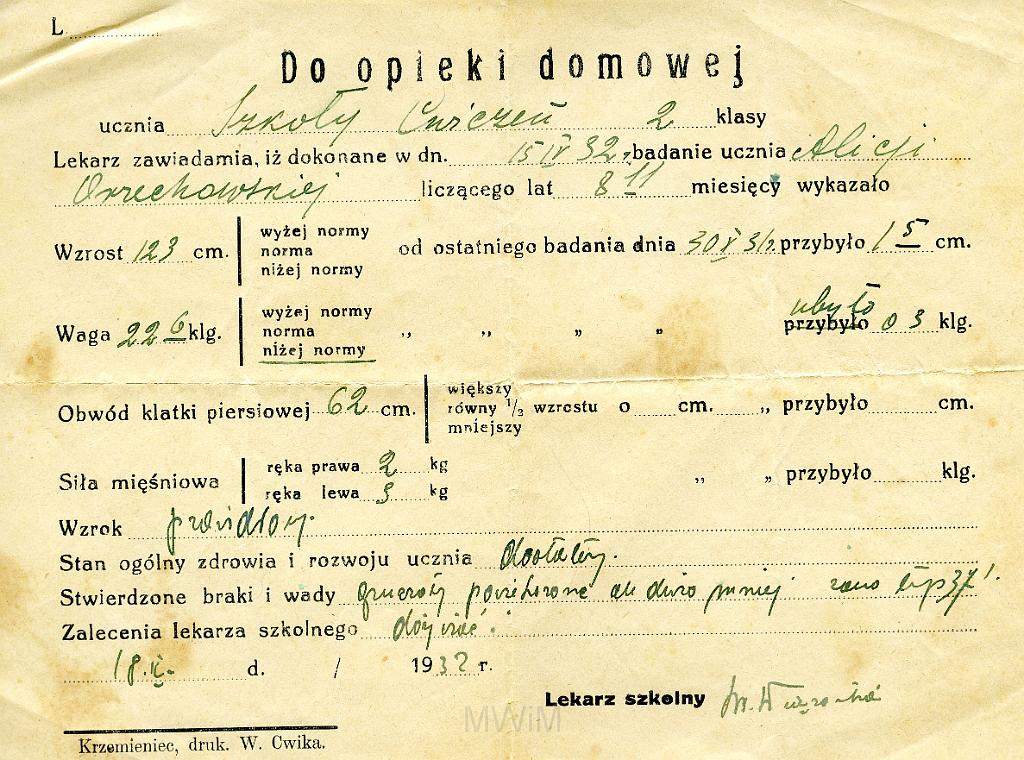 L
Do opieki domowej
ucznia Szkoły Ćwiczeń 2 klasy
Lekarz zawiadamia, iż dokonane w dn. 15 IV 32 r. badanie ucznia Alicji
Orzechowskiej liczącego lat 8 11 miesięcy wykazało
Wzrost 123 cm. wyżej normy
norma
niżej normy
od ostatniego badania dnia 30 X 31 r. przybyło 1 5 cm.
Waga 22 6 klg. wyżej normy
norma
niżej normy
„ „ „ „ ubyło
przybyło 0 3 klg.
Obwód klatki piersiowej 62 cm. większy
równy ½ wzrostu o cm. „ przybyło cm.
mniejszy
Siła mięśniowa ręka prawa 2 kg
ręka lewa 3 kg
„ „ przybyło klg.
Wzrok prawidłowy.
Stan ogólny zdrowia i rozwoju ucznia dostateczny.
Stwierdzone braki i wady gruczoły powiększone ale dużo mniej
Zalecenia lekarza szkolnego
18. IV. d. / 1932 r.
Lekarz szkolny
MWiM
Krzemieniec, druk. W. Cwika.